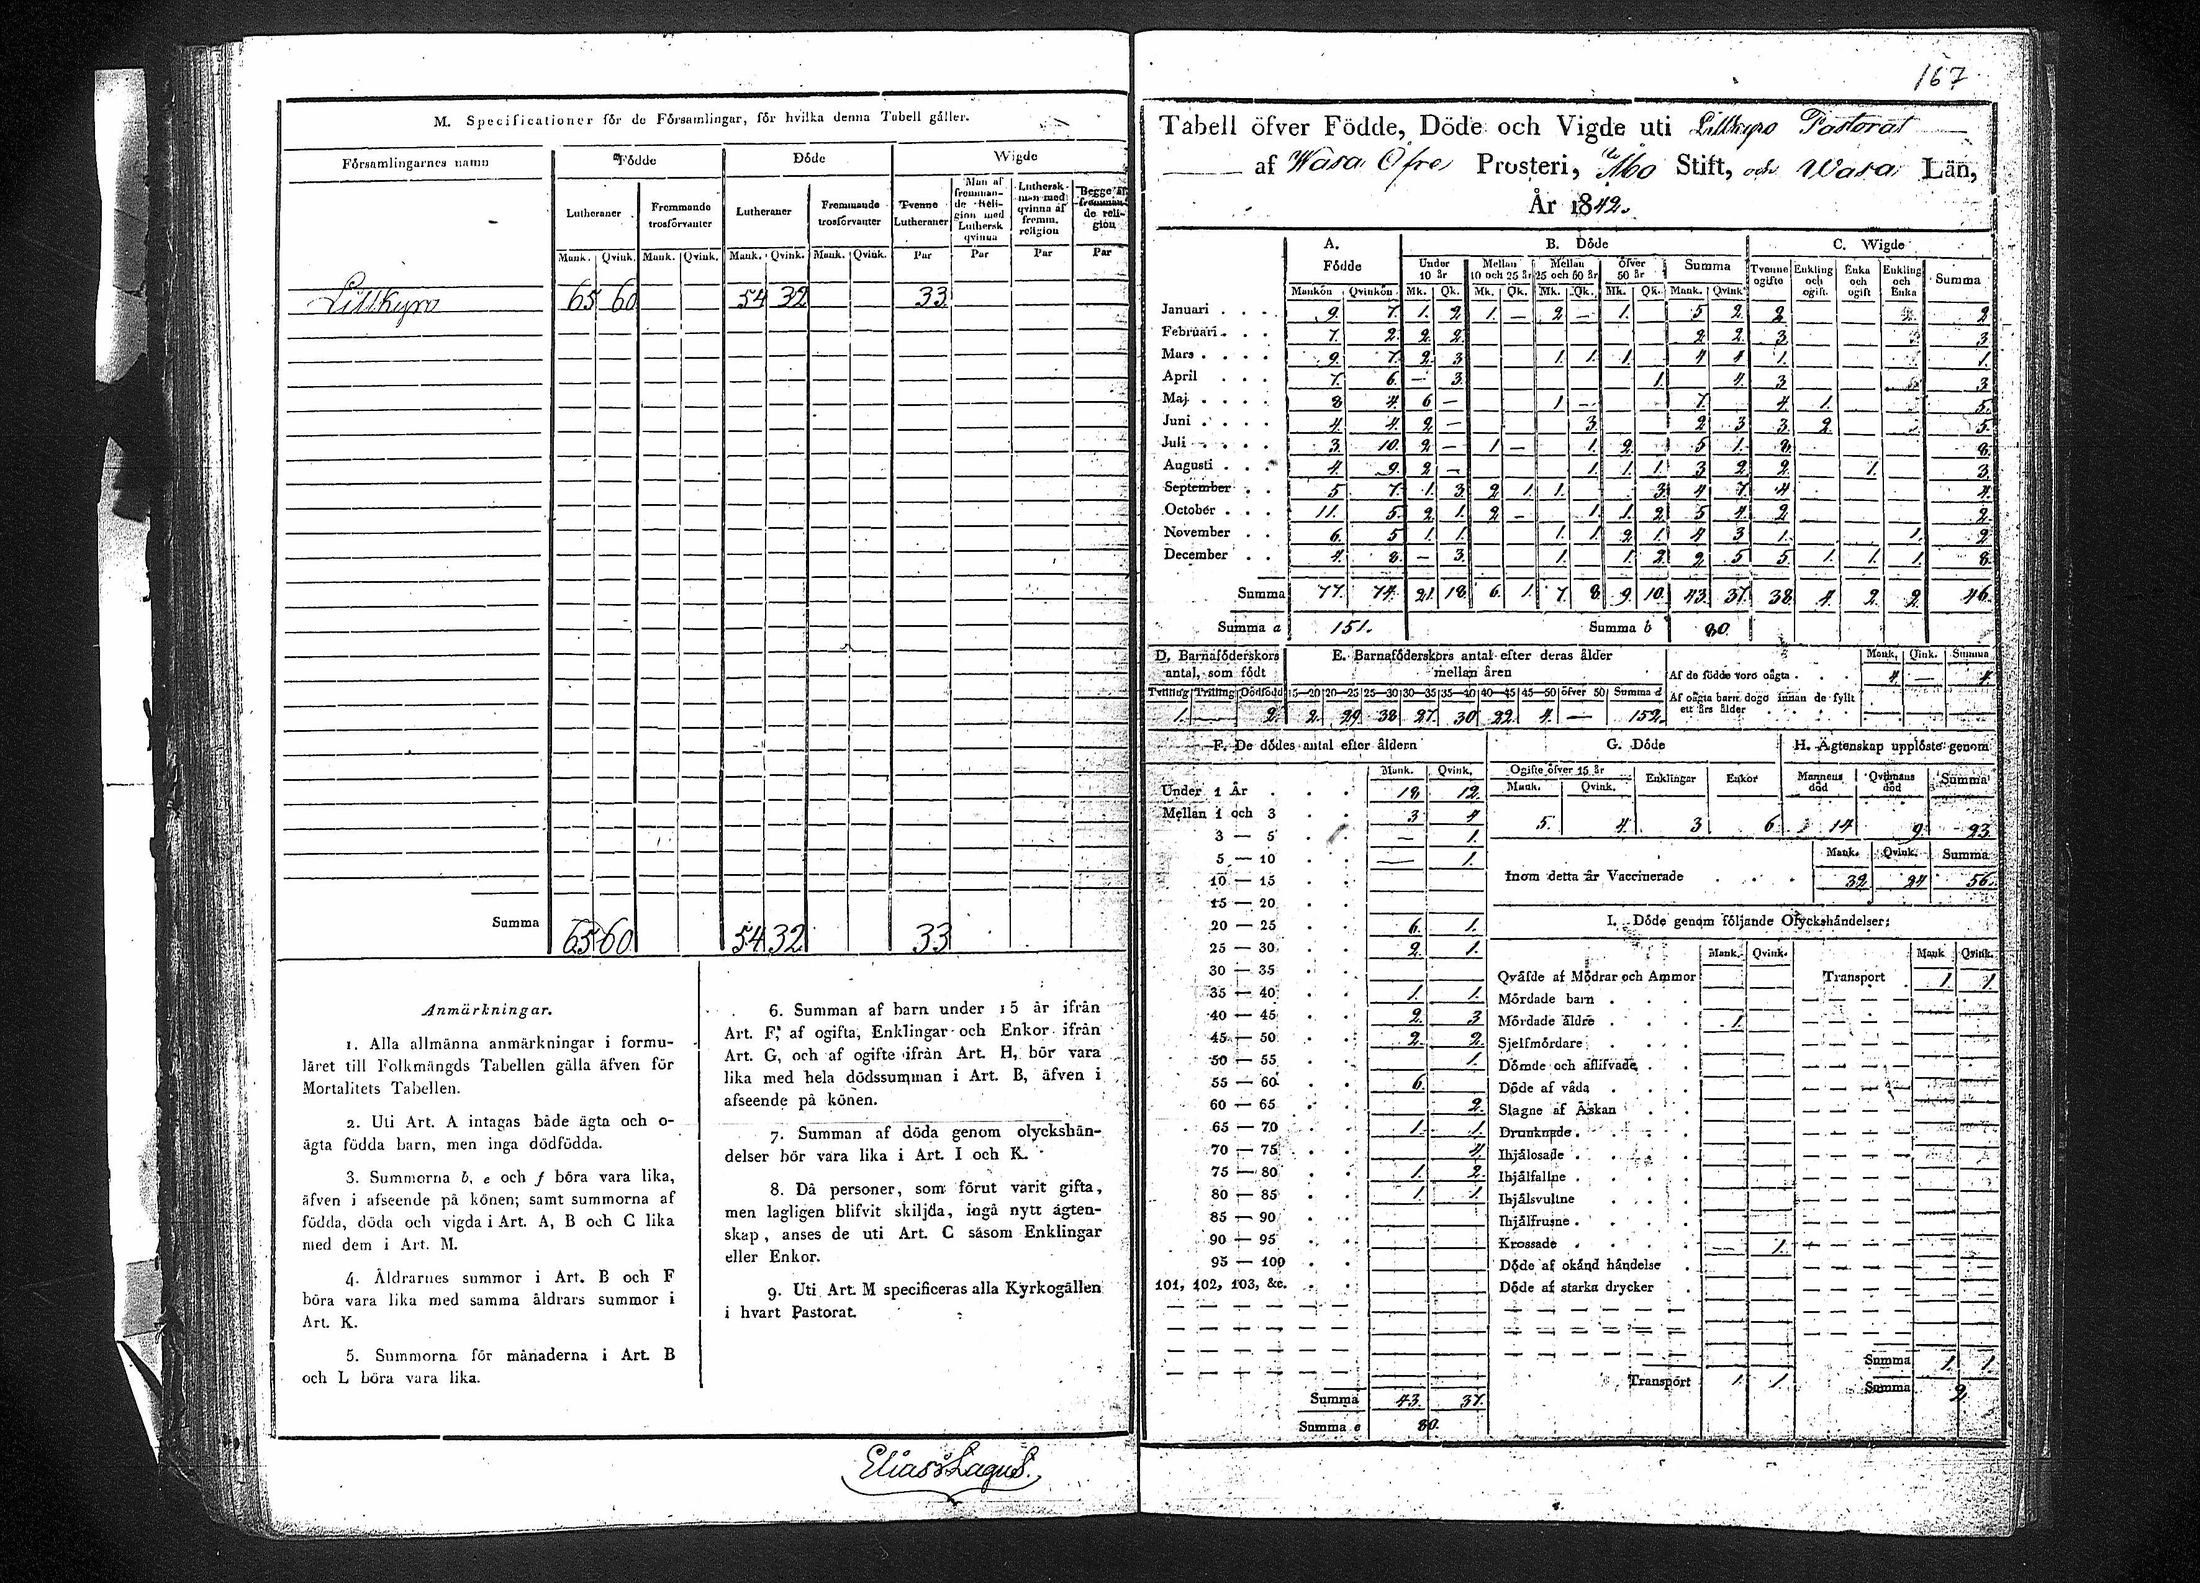 M. Specificationer för de Församlingar, för hvilka denna Tabell gäller.
Församlingarnes namn | Födde | Döde | Wigde
Lutheraner | Fremmande trosförvanter | Lutheraner | Fremmande trosförvanter | Tvenne Lutheraner | Man af fremmande Religion med Luthersk qvinna | Luthersk man med qvinna af fremm. religion | Begge af fremmande religion
Mank. | Qvink. | Mank. | Qvink. | Mank. | Qvink. | Mank. | Qvink. | Par | Par | Par | Par
Lillkyro 65 60 54 32 33
Summa 65 60 54 32 33
Anmärkningar.
1. Alla allmänna anmärkningar i formu-
läret till Folkmängds Tabellen gälla äfven för
Mortalitets Tabellen.
2. Uti Art. A intagas både ägta och o-
ägta födda barn, men inga dödfödda.
3. Summorna b, e och f böra vara lika,
äfven i afseende på könen; samt summorna af
födda, döda och vigda i Art. A, B och C lika
med dem i Art. M.
4. Åldrarnes summor i Art. B och F
böra vara lika med samma åldrars summor i
Art. K.
5. Summorna för månaderna i Art. B
och L böra vara lika.
6. Summan af barn under 15 år ifrån
Art. F, af ogifta, Enklingar och Enkor ifrån
Art. G, och af ogifte ifrån Art. H, bör vara
lika med hela dödssumman i Art. B, äfven i
afseende på könen.
7. Summan af döda genom olyckshän-
delser bör vara lika i Art. I och K.
8. Då personer, som förut varit gifta,
men lagligen blifvit skiljda, ingå nytt ägten-
skap, anses de uti Art. C såsom Enklingar
eller Enkor.
9. Uti Art. M specificeras alla Kyrkogällen
i hvart Pastorat.
Elias Lagus.
167
Tabell öfver Födde, Döde och Vigde uti Lillkyro Pastorat
af Wasa Öfre Prosteri, Åbo Stift, och Wasa Län,
År 1842.
A. Födde | B. Döde | C. Wigde
Under 10 år | Mellan 10 och 25 år | Mellan 25 och 50 år | Öfver 50 år | Summa | Tvenne ogifte | Enkling och ogift. | Enka och ogift | Enkling och Enka | Summa
Mankön | Qvinkön | Mk. | Qk. | Mk. | Qk. | Mk. | Qk. | Mk. | Qk. | Mank. | Qvink.
Januari 9. 7. 1. 2 1. — 2 — 1. 5 2. 2 2
Februari 7. 2. 2. 2 2 2. 3 3
Mars 9. 7. 2. 3 1. 1. 1. 4 4 1. 1.
April 7. 6. — 3. 1. 4. 3 3
Maj 8 4. 6 — 1 — 7. 4. 1. 5.
Juni 4. 4. 2 — 3. 2 3 3 2 5
Juli 3. 10. 2 — 1 — 1. 2. 5 1. 8. 8.
Augusti 4. 9. 2 — 1. 1. 1. 3 2 2. 1. 3
September 5 7. 1. 3. 2 1. 1. 3. 4 7. 4 4.
October 11. 5. 2. 1. 2 — 1. 1. 2 5 4. 2 2.
November 6. 5 1. 1. 1. 1. 2 1. 4 3 1. 1. 2
December 4. 8. — 3. 1. 1. 2 2 5 5 1. 1. 1. 8.
Summa 77. 74. 21. 18. 6. 1. 7. 8. 9. 10. 43. 37. 38 4. 2. 2 46.
Summa a 151. Summa b 80.
D. Barnaföderskors antal, som födt
Tvilling | Trilling | Dödfödd
1. — 2.
E. Barnaföderskors antal efter deras ålder mellan åren
15—20 | 20—25 | 25—30 | 30—35 | 35—40 | 40—45 | 45—50 | öfver 50 | Summa d
2. 29. 38 27. 30 22. 4. — 152.
Mank. | Qink. | Summa
Af de födde voro oägta 4. — 4.
Af oägta barn dogo innan de fyllt ett års ålder
F. De dödes antal efter åldern
Mank. | Qvink.
Under 1 År 18. 12.
Mellan 1 och 3 3 4
3 — 5 — 1.
5 — 10 — 1.
10 — 15
15 — 20
20 — 25 6. 1.
25 — 30 2. 1.
30 — 35
35 — 40 1. 1.
40 — 45 2. 3
45 — 50 2. 2.
50 — 55 1.
55 — 60 6.
60 — 65 2.
65 — 70 1. 1.
70 — 75 4.
75 — 80 1. 2.
80 — 85 1. 1.
85 — 90
90 — 95
95 — 100
101, 102, 103, &c.
Summa 43. 37.
Summa e 80.
G. Döde
Ogifte öfver 15 år | Enklingar | Enkor
Mank. | Qvink.
5. 4. 3 6.
H. Ägtenskap upplöste genom
Mannens död | Qvinnans död | Summa
14 9. 23.
Mank. | Qvink. | Summa
Inom detta år Vaccinerade 32 24 56.
I. Döde genom följande Olyckshändelser:
Mank. | Qvink. | Mank | Qvink.
Qväfde af Mödrar och Ammor
Transport 1. 1
Mördade barn
Mördade äldre 1.
Sjelfmördare
Dömde och aflifvade
Döde af våda
Slagne af Åskan
Drunknade
Ihjälosade
Ihjälfallne
Ihjälsvultne
Ihjälfrusne
Krossade — 1.
Döde af okänd händelse
Döde af starka drycker
Transport 1. 1.
Summa 1. 1.
Summa 2